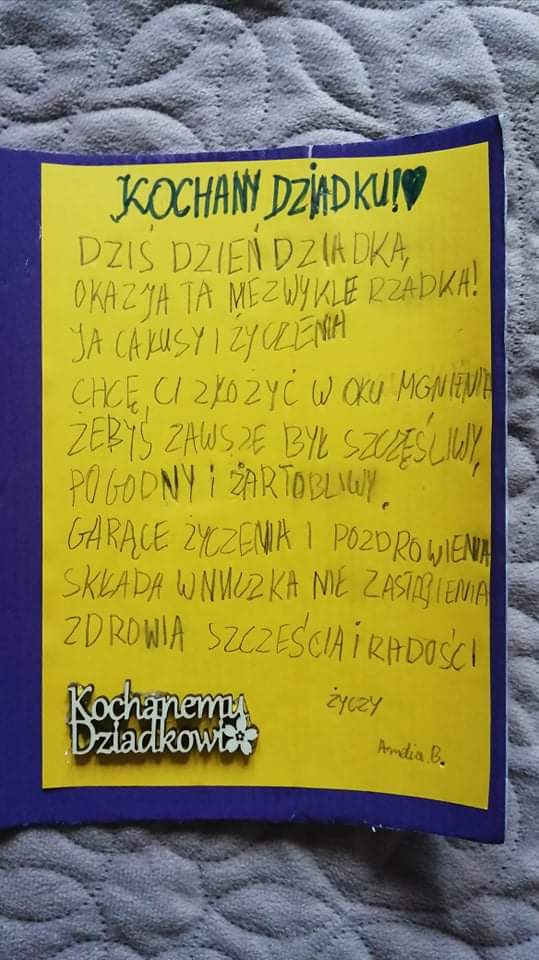 KOCHANY DZIADKU!♥
DZIŚ DZIEŃ DZIADKA,
OKAZJA TA NIEZWYKLE RZADKA!
JA CAŁUSY I ŻYCZENIA
CHCĘ CI ZŁOŻYĆ W OKU MGNIENIA
ŻEBYŚ ZAWSZE BYŁ SZCZĘŚLIWY,
POGODNY i ŻARTOBLIWY.
GARĄCE ŻYCZENIA I POZDROWIENIA
SKŁADA WNUCZKA NIE ZASTĄPIENIA
ZDROWIA SZCZEŚCIA i RADOŚCI
życzy
Kochanemu
Dziadkowi
Amelia B.